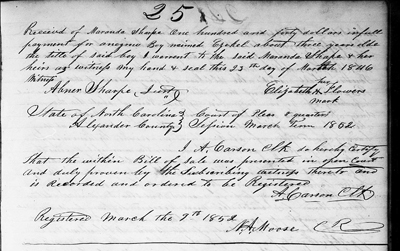 25
Received of Maranda Sharpe One hundred and forty dollars in full
payment for a negro Boy named Ezekel about three years olde
the title of said boy I warrent to the said Maranda Sharpe & her
heirs as witness my hand & seal this 23th day of March 1846
Witness her
Abner Sharpe Elizabeth X Flowers
mark
State of North Carolina } Court of Pleas & quarters
Alexander County } Session March Term 1852
I A. Carson Clk do hereby Certify
that the within Bill of Sale was presented in open Court
and duly proven by the Subscribing witness thereto and
is Recorded and ordered to be Registered
A Carson Clk
Registered March the 9th 1852
Moose CR